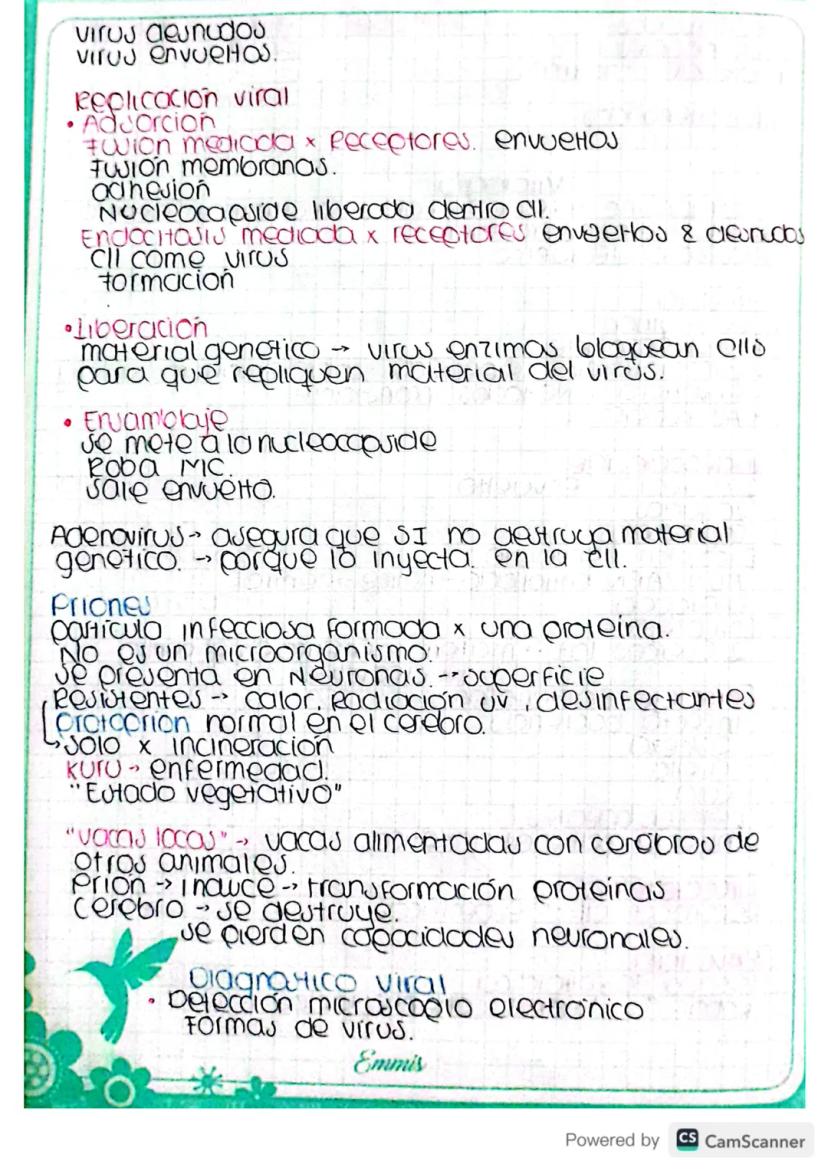 virus desnudos
virus envueltos.
Replicación viral
• Adsorción
Fusión mediada x Receptores. envueltos
Fusión membranas.
adhesión
Nucleocapside liberado dentro cll.
Endocitosis mediada x receptores envueltos & desnudos
Cll come virus
formación
• Liberación
material genético → virus enzimas bloquean clls
para que repliquen material del virus.
• Ensamblaje
se mete a la nucleocapside
Roba MC.
sale envuelto.
Adenovirus → asegura que SI no destruya material
genético. → porque lo inyecta en la cll.
Priones
partícula infecciosa formada x una proteína.
No es un microorganismo
se presenta en Neuronas. → superficie
Resistentes → calor, Radiación UV, desinfectantes
Protoprion normal en el cerebro.
↳ solo x incineración
KURU → enfermedad.
"Estado vegetativo"
"vacas locas" → vacas alimentadas con cerebros de
otros animales.
Prión → induce → transformación proteínas
cerebro → se destruye.
se pierden capacidades neuronales.
Diagnostico viral
• Detección microscopio electrónico
Formas de virus.
Emmis
Powered by CS CamScanner